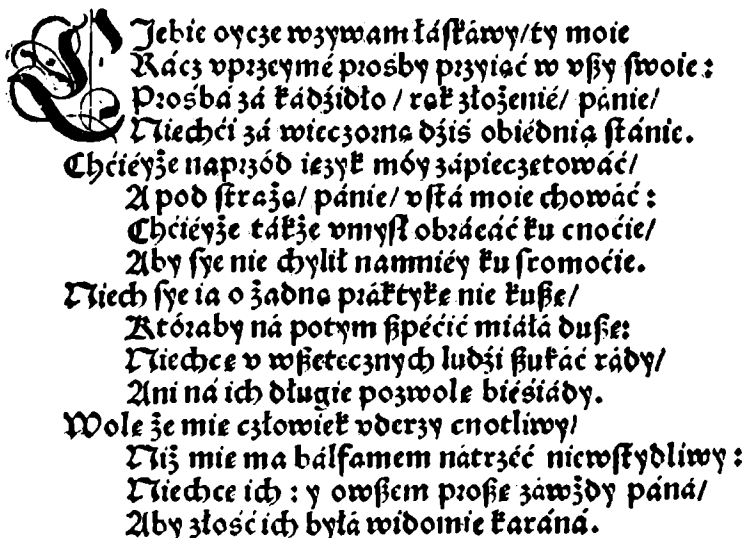 Ciebie oycze wzywam łáskáwy/ty moie
Rácz vprzeymé prośby przyiąć w vszy swoie:
Prośbá zá kádźidło / rąk złożenié/ pánie/
Niechći zá wieczorną dźiś obiédnią stánie.
Chćieyże naprzód ięzyk móy zápieczętowáć/
A pod strażą/ pánie/ vstá moie chowáć:
Chćiéyże tákże vmysł obrácáć ku cnoćie/
Aby sye nie chylił namniéy ku sromoćie.
Niech sye ia o żadną práktykę nie kuszę/
Któraby ná potym szpéćić miáłá duszę:
Niechcę v wszetecznych ludźi szukáć rády/
Ani ná ich długie pozwolę biésiády.
Wolę że mie człowiek vderzy cnotliwy/
Niż mie ma bálsamem nátrzéć niewstydliwy:
Niechcę ich: y owszem proszę záwżdy páná/
Aby złość ich byłá widomie karáná.